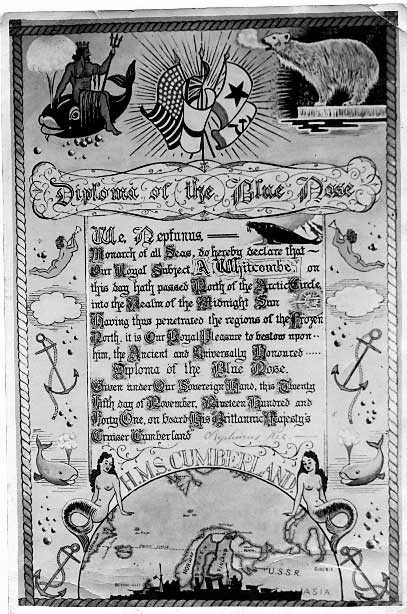 Diploma of the Blue Nose
We, Neptunus
Monarch of all Seas, do hereby declare that
Our Loyal Subject, A Whitcombe, on
this day hath passed North of the Arctic Circle,
into the Realm of the Midnight Sun
Having thus penetrated the regions of the Frozen
North, it is Our Royal Pleasure to bestow upon
him, the Ancient and Universally Honoured .....
Diploma of the Blue Nose.
Given under Our Sovereign Hand, this Twenty
Fifth day of November, Nineteen Hundred and
Forty One, on board His Brittannic Majesty's
Cruiser Cumberland Neptunus Rex
H.M.S. CUMBERLAND
U.S.S.R.
SIBERIA
ASIA